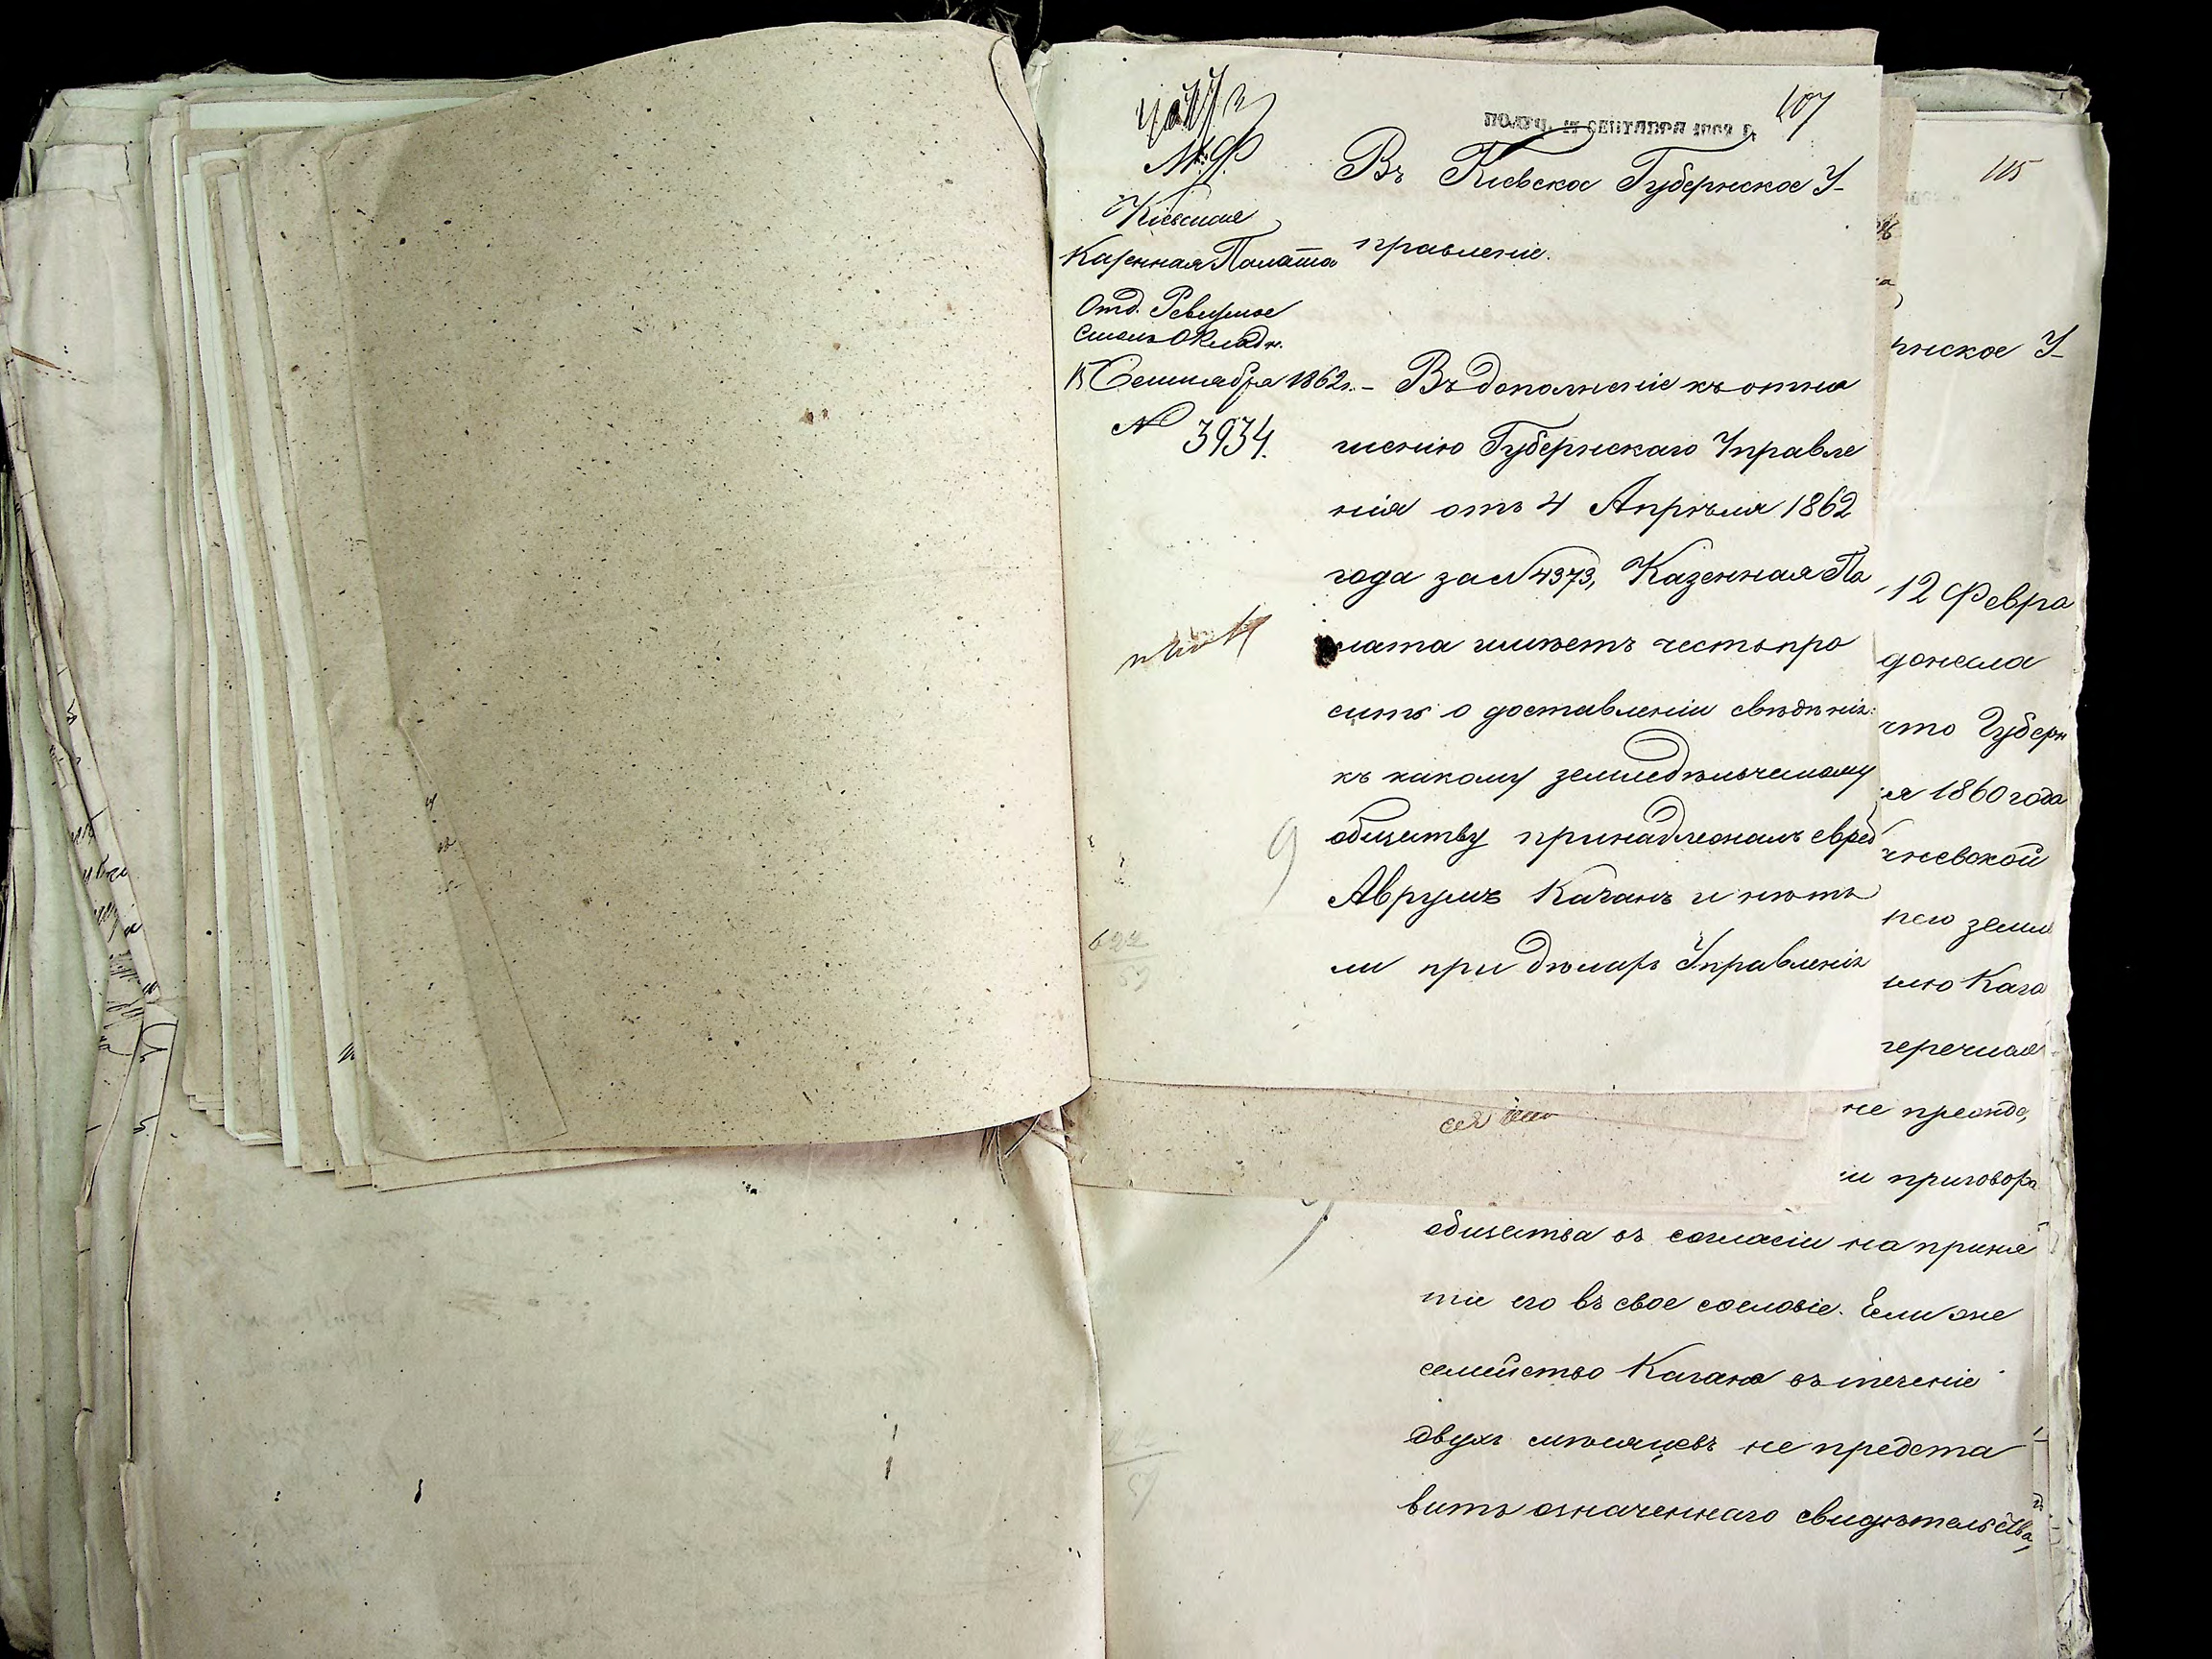 107
ПОЛУЧ. 17 СЕНТЯБРЯ 1862 Г.
М.Ф.
Кіевская
Казенная Палата
Отд. Ревизное
Столъ Окладн.
15 Сентября 1862 г.
N 3934.
Въ Кіевское Губернское У-
правленіе.
Въ дополненіе къ отно
шенію Губернскаго Управле
нія отъ 4 Апрѣля 1862
года за N 4373, Казенная Па
лата имѣетъ честь про
сить о доставленіи свѣдѣнія:
къ какому земледѣльческому
обществу принадлежалъ еврей
Аврумъ Каганъ и нѣтъ
ли при дѣлахъ Управленія
115
рнское У-
12 Февра
донесла
что Губерн
я 1860 года
него земле
Кага
не преоидо,
и приговора
общества въ согласіи на приня
тіе его въ свое сословіе. Если же
семейство Кагана въ теченіе
двухъ мѣсяцевъ не предста
витъ означеннаго свидѣтельства,